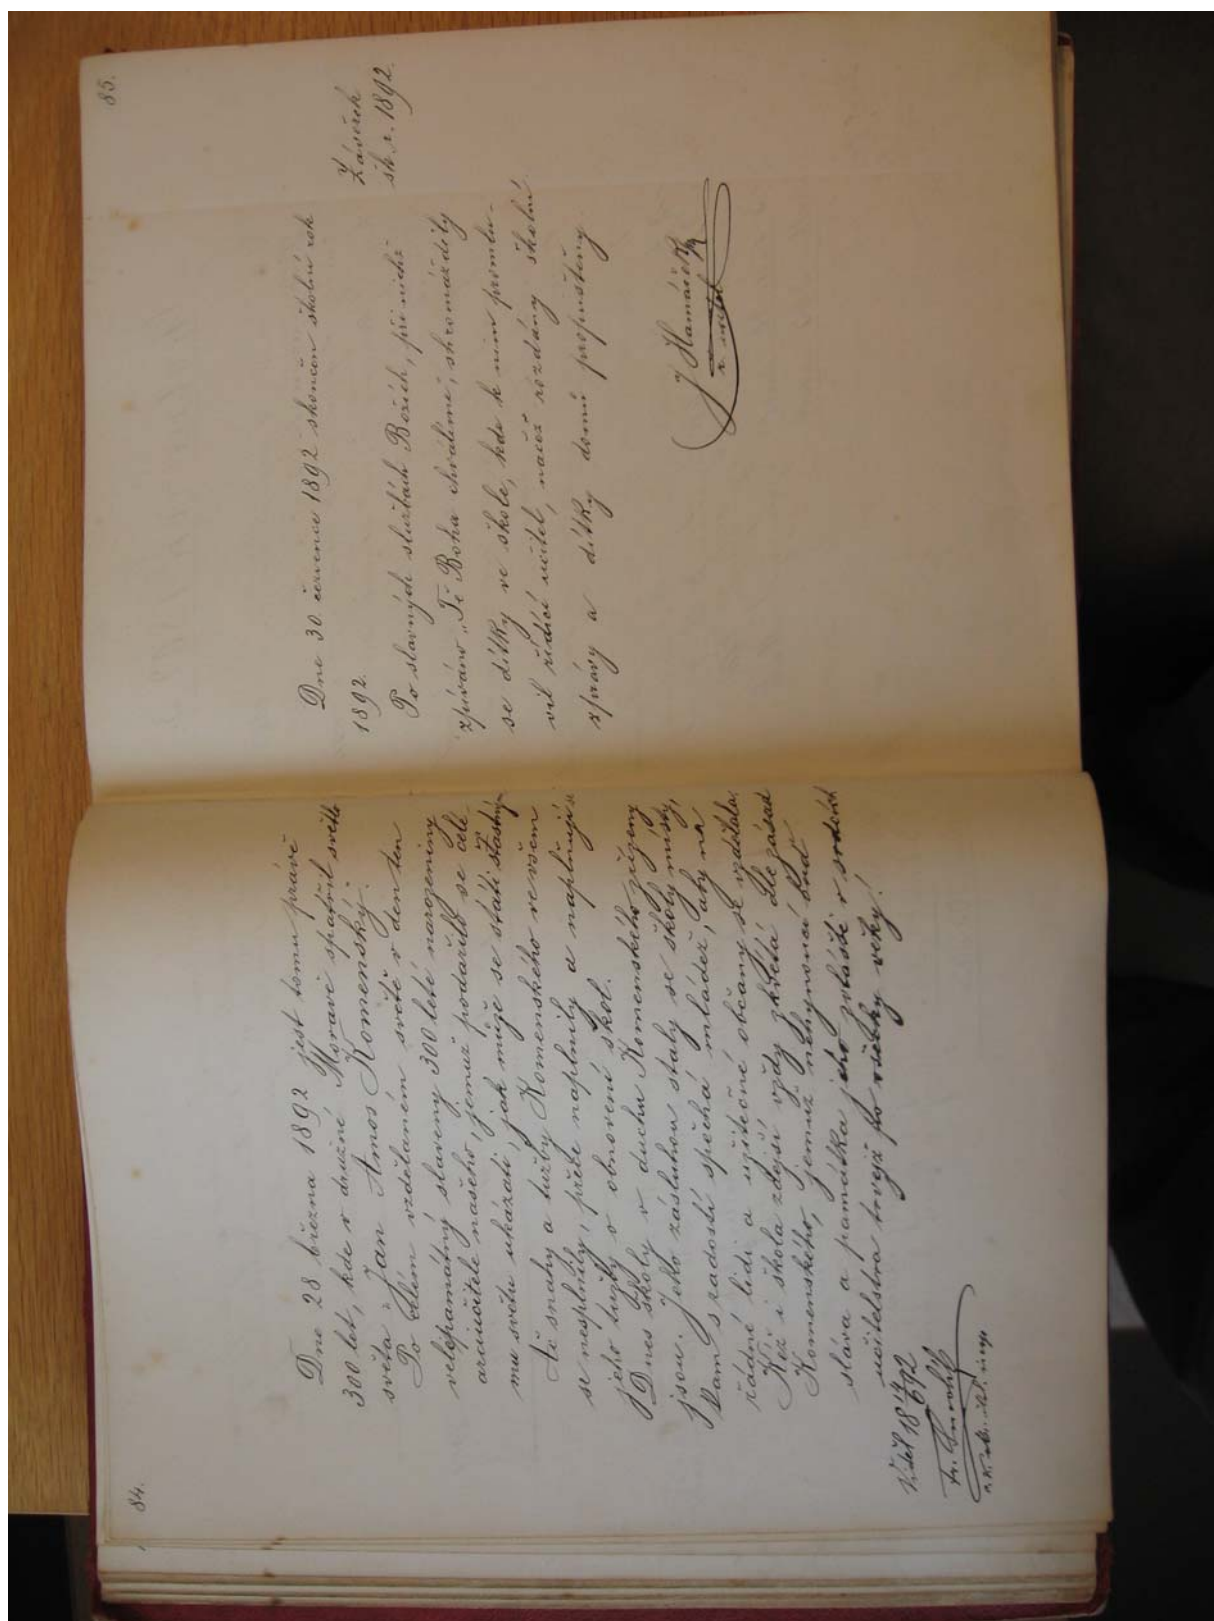 84.
Dne 28 března 1892 jest tomu právě
300 let, kde v družné Moravě spatřil světlo
světa "Jan Amos Komenský."
Po celém vzdělaném světě v den ten
velepamátný slaveny 300 leté narozeniny
arciučitele našeho, jemuž podařilo se cele-
mu světu ukázati, jak může se státi šťastným
Ač snahy a tužby Komenského ve všem
se nesplnily, přece naplnily a naplňují se
jeho tužby v obnovení škol.
Dnes školy v duchu Komenského zřízeny
jsou. Jeho zásluhou staly se školy místy,
kam s radostí spěchá mládež, aby na
řádné lidi a užitečné občany se vzdělala.
Kéž i škola zdejší vždy zkvétá dle zásad
Komenského, jemuž nehynoucí buď
sláva a památka jeho zvláště v srdcích
učitelstva trvejž po všechny věky!
Viděl 18 14/6 92
85.
Dne 30. července 1892 skončen školní rok
1892.
Závěrek
šk. r. 1892.
Po slavných službách Božích, při nichž
zpíváno „Tě Boha chválíme, shromáždily
se dítky ve škole, kde k nim promlu-
vil řídící učitel, načež rozdány školní
zprávy a dítky domů propuštěny.
J Hamáček
ř. učitel